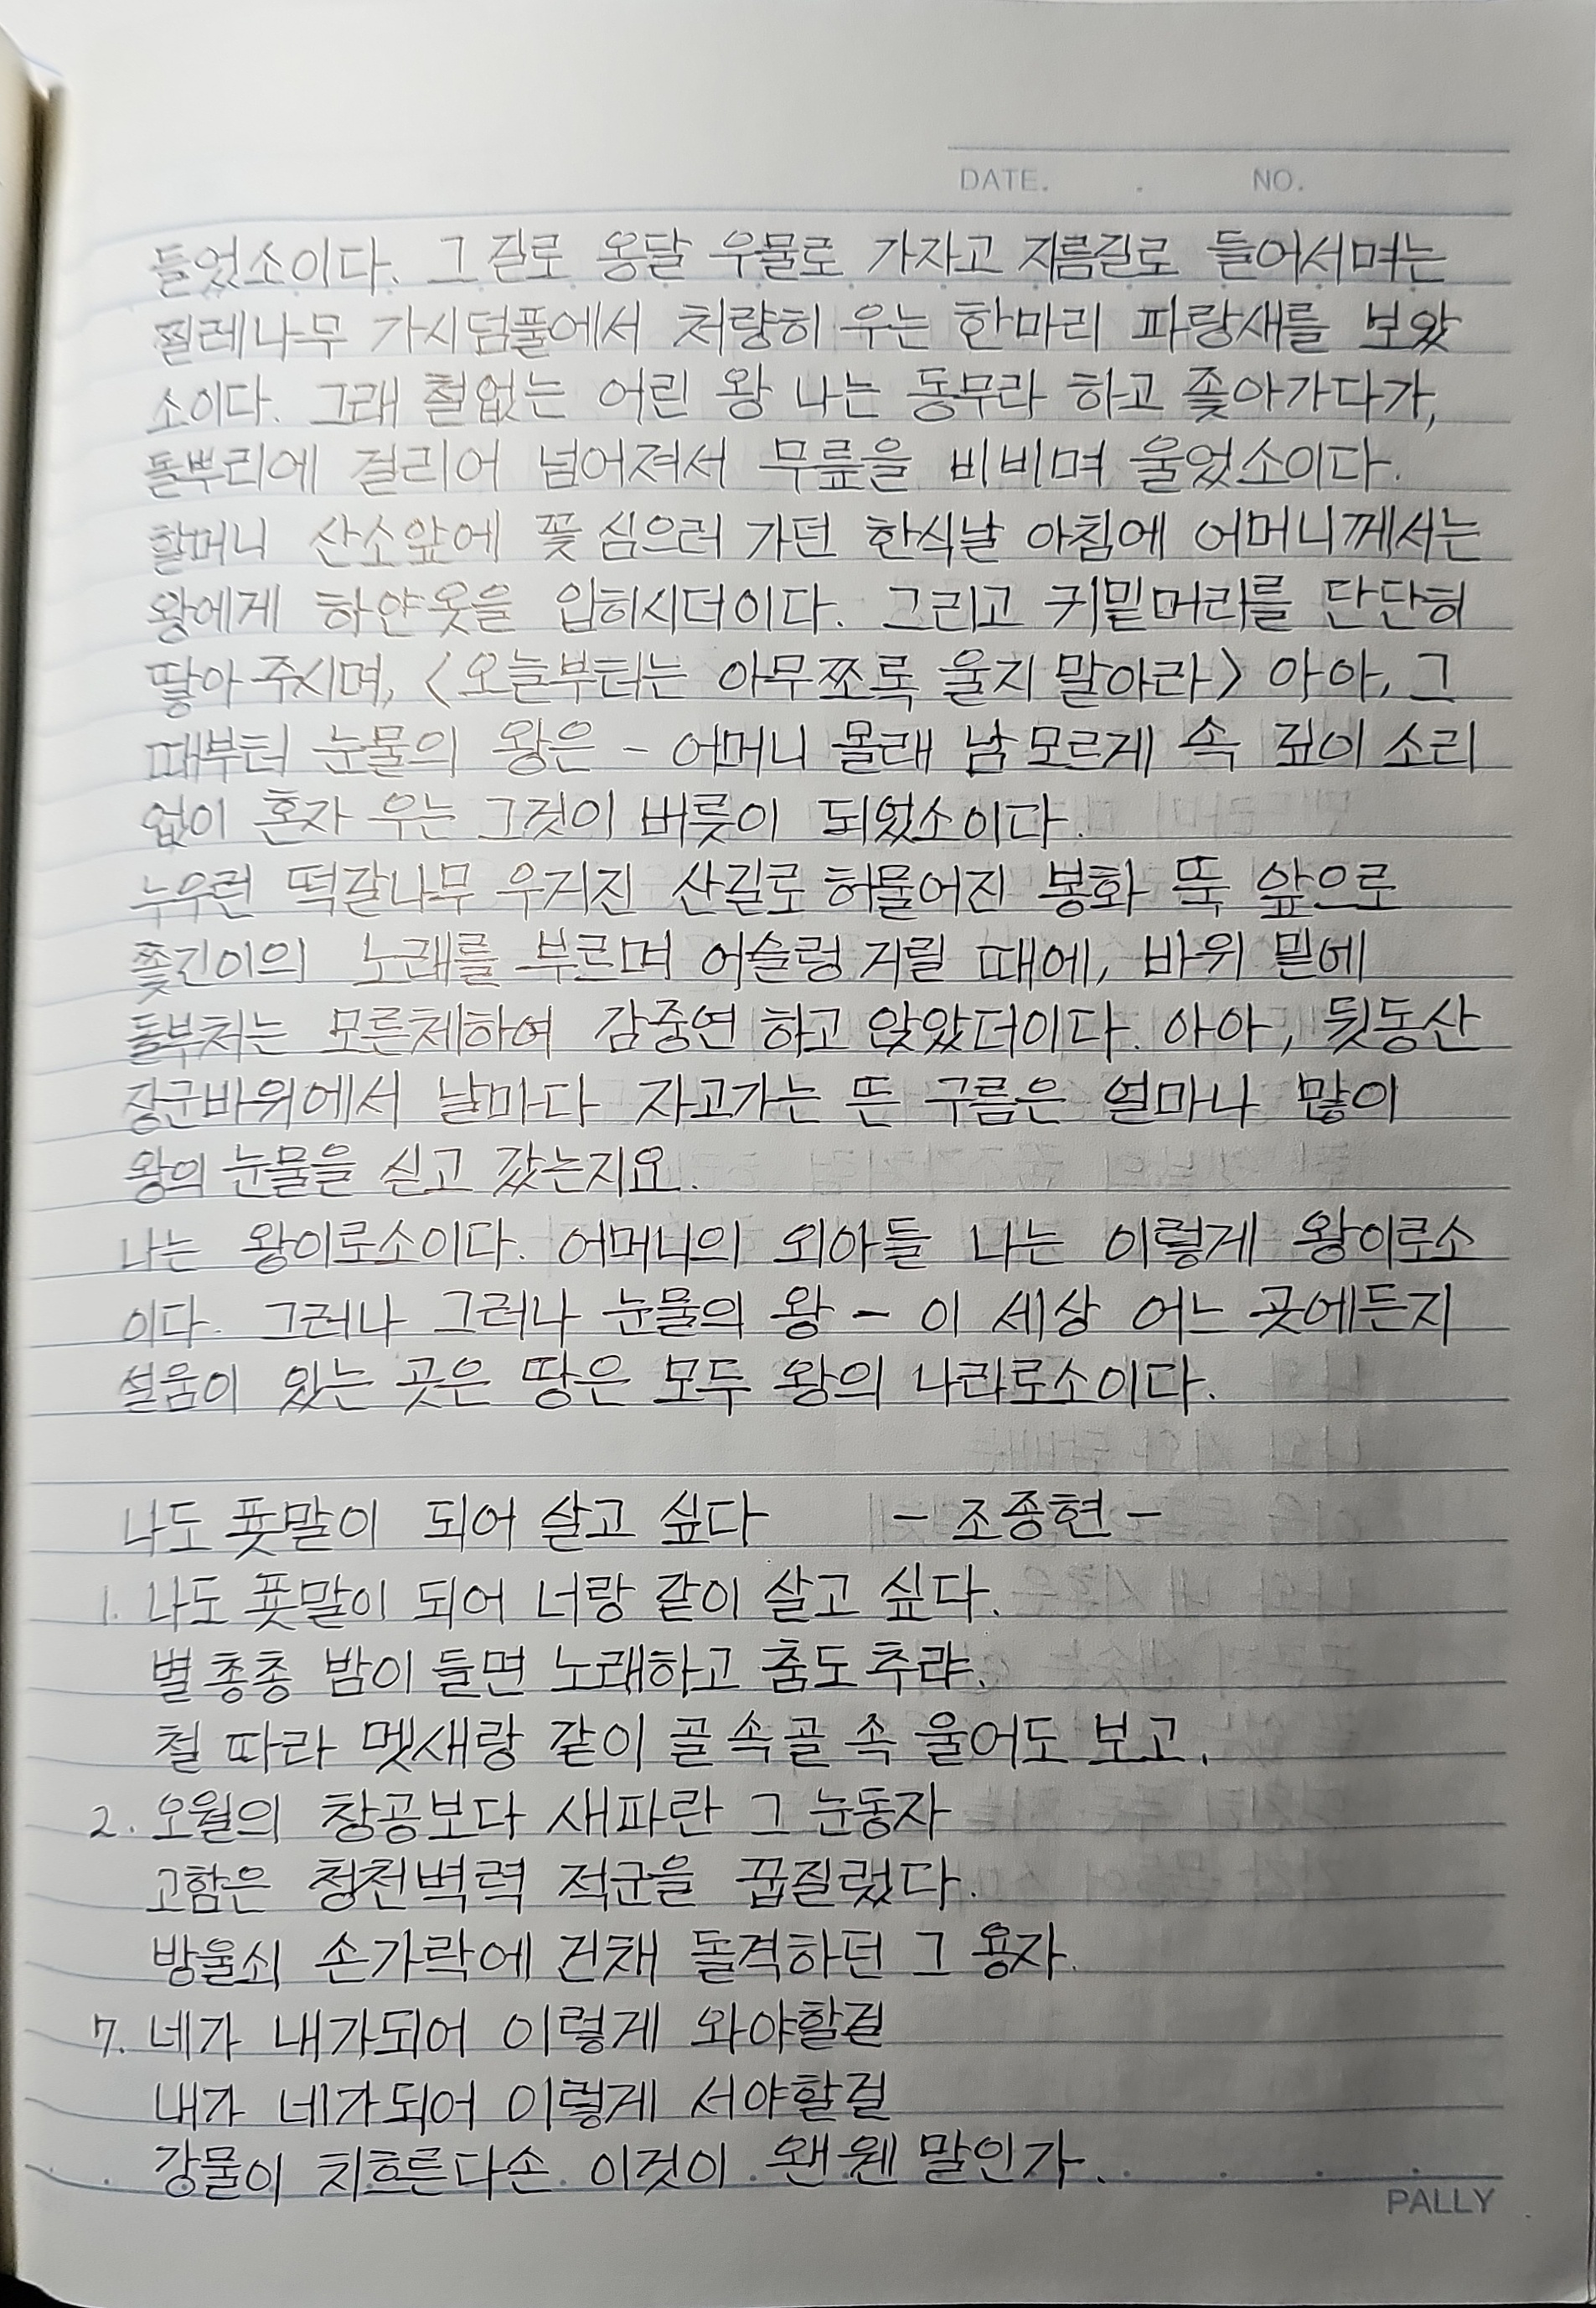 DATE. . NO.
들었소이다. 그길로 옹달 우물로 가자고 지름길로 들어서며는
찔레나무 가시덤풀에서 처량히 우는 한마리 파랑새를 보았
소이다. 그래 철없는 어린 왕 나는 동무라 하고 좇아가다가,
돌뿌리에 걸리어 넘어져서 무릎을 비비며 울었소이다.
할머니 산소앞에 꽃 심으러 가던 한식날 아침에 어머니께서는
왕에게 하얀옷을 입히시더이다. 그리고 귀밑머리를 단단히
땋아 주시며, <오늘부터는 아무쪼록 울지 말아라> 아아, 그
때부터 눈물의 왕은 - 어머니 몰래 남모르게 속 깊이 소리
없이 혼자 우는 그것이 버릇이 되었소이다.
누우런 떡갈나무 우거진 산길로 허물어진 봉화 뚝 앞으로
쫓긴이의 노래를 부르며 어슬렁거릴 때에, 바위 밑에
돌부처는 모른체하여 감중연 하고 앉았더이다. 아아, 뒷동산
장군바위에서 날마다 자고가는 뜬 구름은 얼마나 많이
왕의 눈물을 싣고 갔는지요.
나는 왕이로소이다. 어머니의 외아들 나는 이렇게 왕이로소
이다. 그러나 그러나 눈물의 왕 - 이 세상 어느 곳에든지
설움이 있는 곳은 땅은 모두 왕의 나라로소이다.
나도 푯말이 되어 살고 싶다 - 조종현 -
1. 나도 푯말이 되어 너랑 같이 살고 싶다.
별 총총 밤이 들면 노래하고 춤도 추랴.
철 따라 멧새랑 같이 골 속골 속 울어도 보고.
2. 오월의 창공보다 새파란 그 눈동자
고함은 청천벽력 적군을 꿉질렀다.
방울쇠 손가락에 건채 돌격하던 그 용자.
7. 네가 내가되어 이렇게 와야할걸
내가 네가되어 이렇게 서야할걸
강물이 치흐른다손 이것이 왠 웬 말인가.
PALLY